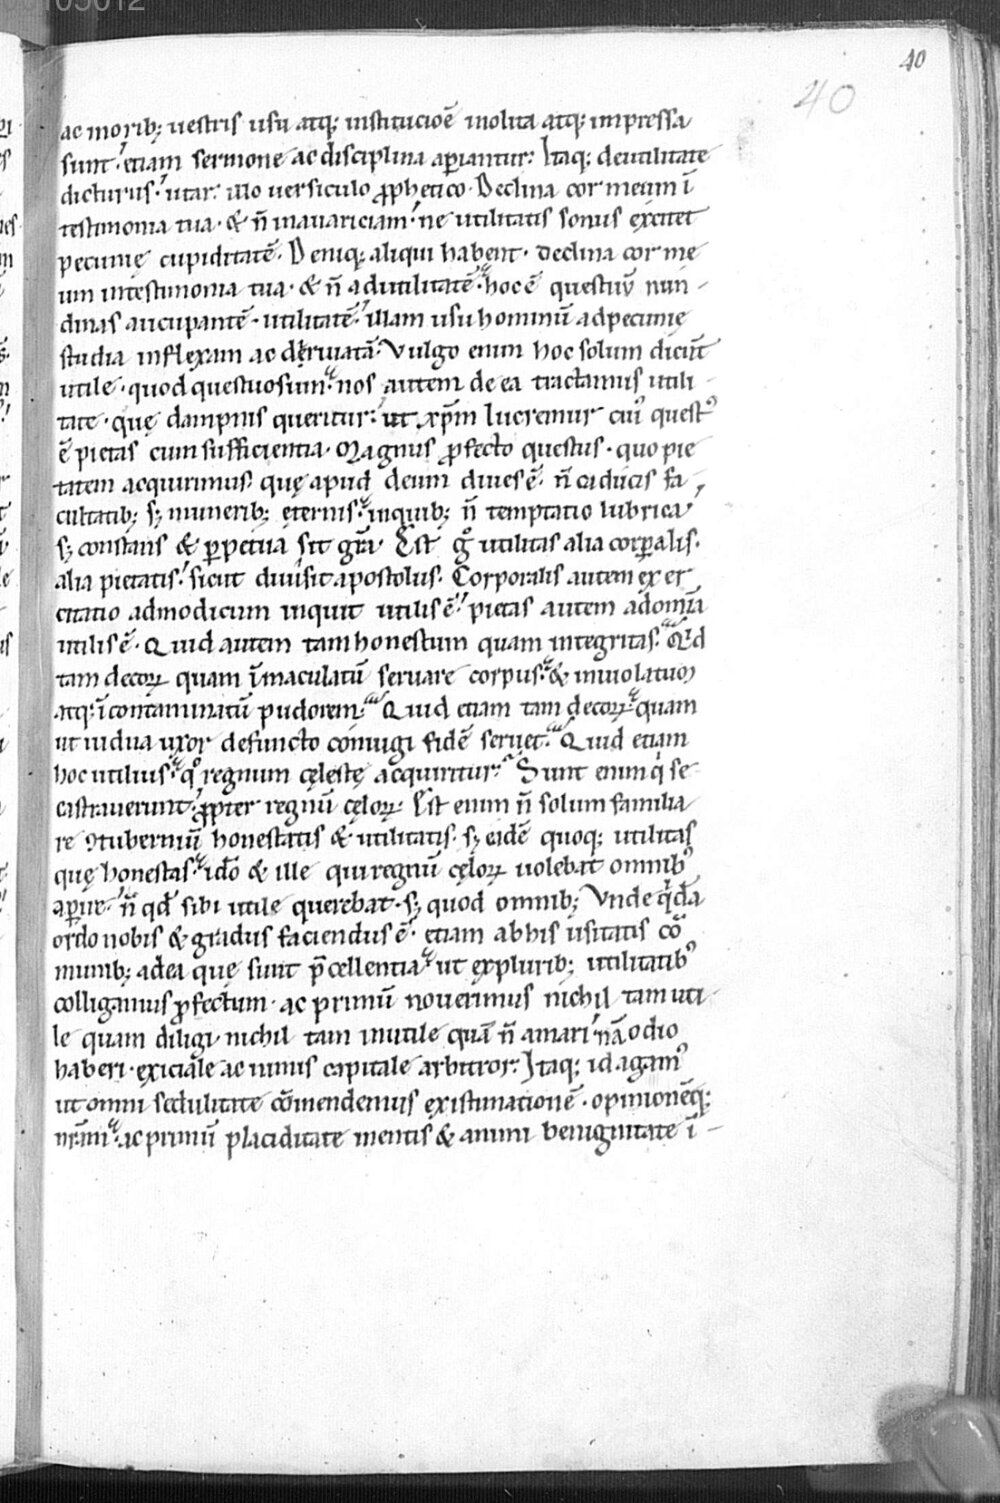 40
40
ac morib; uestris usu atq; institucioē inolita atq; impressa
sunt. etiam sermone ac disciplina aꝑiantur. Itaq; de utilitate
dicturus. utar illo uersiculo ꝓphetico. Declina cor meum ī
testimonia tua. & n̄ in auariciam. ne utilitatis sonus excitet
pecunię cupiditatē. Deniq; aliqui habent. declina cor me
um in testimonia tua. & n̄ ad utilitatē. hoc ē questuū nun-
dinas aucupantē. utilitatē. illam usu hominū ad pecunię
studia inflexam ac deriuatā. Vulgo enim hoc solum dicūt
utile. quod questuosum. nos autem de ea tractamus utili-
tate. quę dampnis queritur. ut xp̄m lucremur cui' quest'
ē pietas cum sufficientia. Magnus ꝓfecto questus. quo pie
tatem acquirimus. quę apud deum diues ē. n̄ caducis fa-
cultatib; s; munerib; ęternis. in quib; n̄ temptatio lubrica
s; constans & ꝑpetua sit gr̄a. Est gͦ utilitas alia corꝑalis.
alia pietatis. sicut diuisit apostolus. Corporalis autem exer
citatio ad modicum inquit utilis ē. pietas autem ad om̄ia
utilis ē. Quid autem tam honestum quam integritas. Qͥd
tam decorꝝ quam īmaculatū seruare corpus. & inuiolatum
atq; īcontaminatū pudorem. Quid etiam tam decorꝝ. quam
ut uidua uxor defuncto coniugi fidē seruet. Quid etiam
hoc utilius. qͦ regnum cęleste acquiritur. Sunt enim qͥ se
castrauerunt. ꝓpter regnū cęlorꝝ. Est enim n̄ solum familia
re ꝯtuberniū honestatis & utilitatis. s; eadē quoq; utilitas
quę honestas. idō & ille qui regnū cęlorꝝ uolebat omnib'
aꝑire. n̄ qd̄ sibi utile querebat. s; quod omnib; Vnde qͥdā
ordo nobis & gradus faciendus ē. etiam ab his usitatis cō
munib; ad ea quę sunt p̄cellentia. ut ex plurib; utilitatib'
colligamus ꝓfectum. ac primū nouerimus nichil tam uti-
le quam diligi. nichil tam inutile quā n̄ amari. nā odio
haberi. exiciale ac nimis capitale arbitror. Itaq; id agam'
ut omni sedulitate cōmendemus existimationē. opinionēq;
nr̄am. ac primū placiditate mentis & animi benignitate ī-